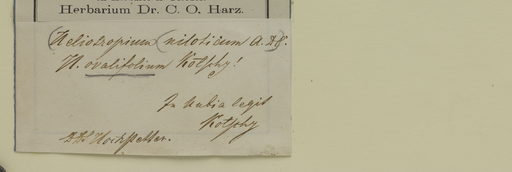 Herbarium Dr. C. O. Harz.
(Heliotropium (niloticum A. DC.
H. ovalifolium Kotschy!
In Nubia legit
Kotschy
Hochstetter.